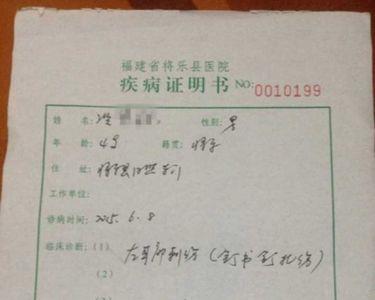 福建省将乐县医院
疾病证明书 NO:0010199
姓 名: 性别: 男
年 龄: 4岁 籍贯: 将乐
住 址: 将乐县
工作单位:
诊病时间: 2015.6.8
临床诊断:(1) 左耳部刺伤(钉书钉扎伤)
(2)